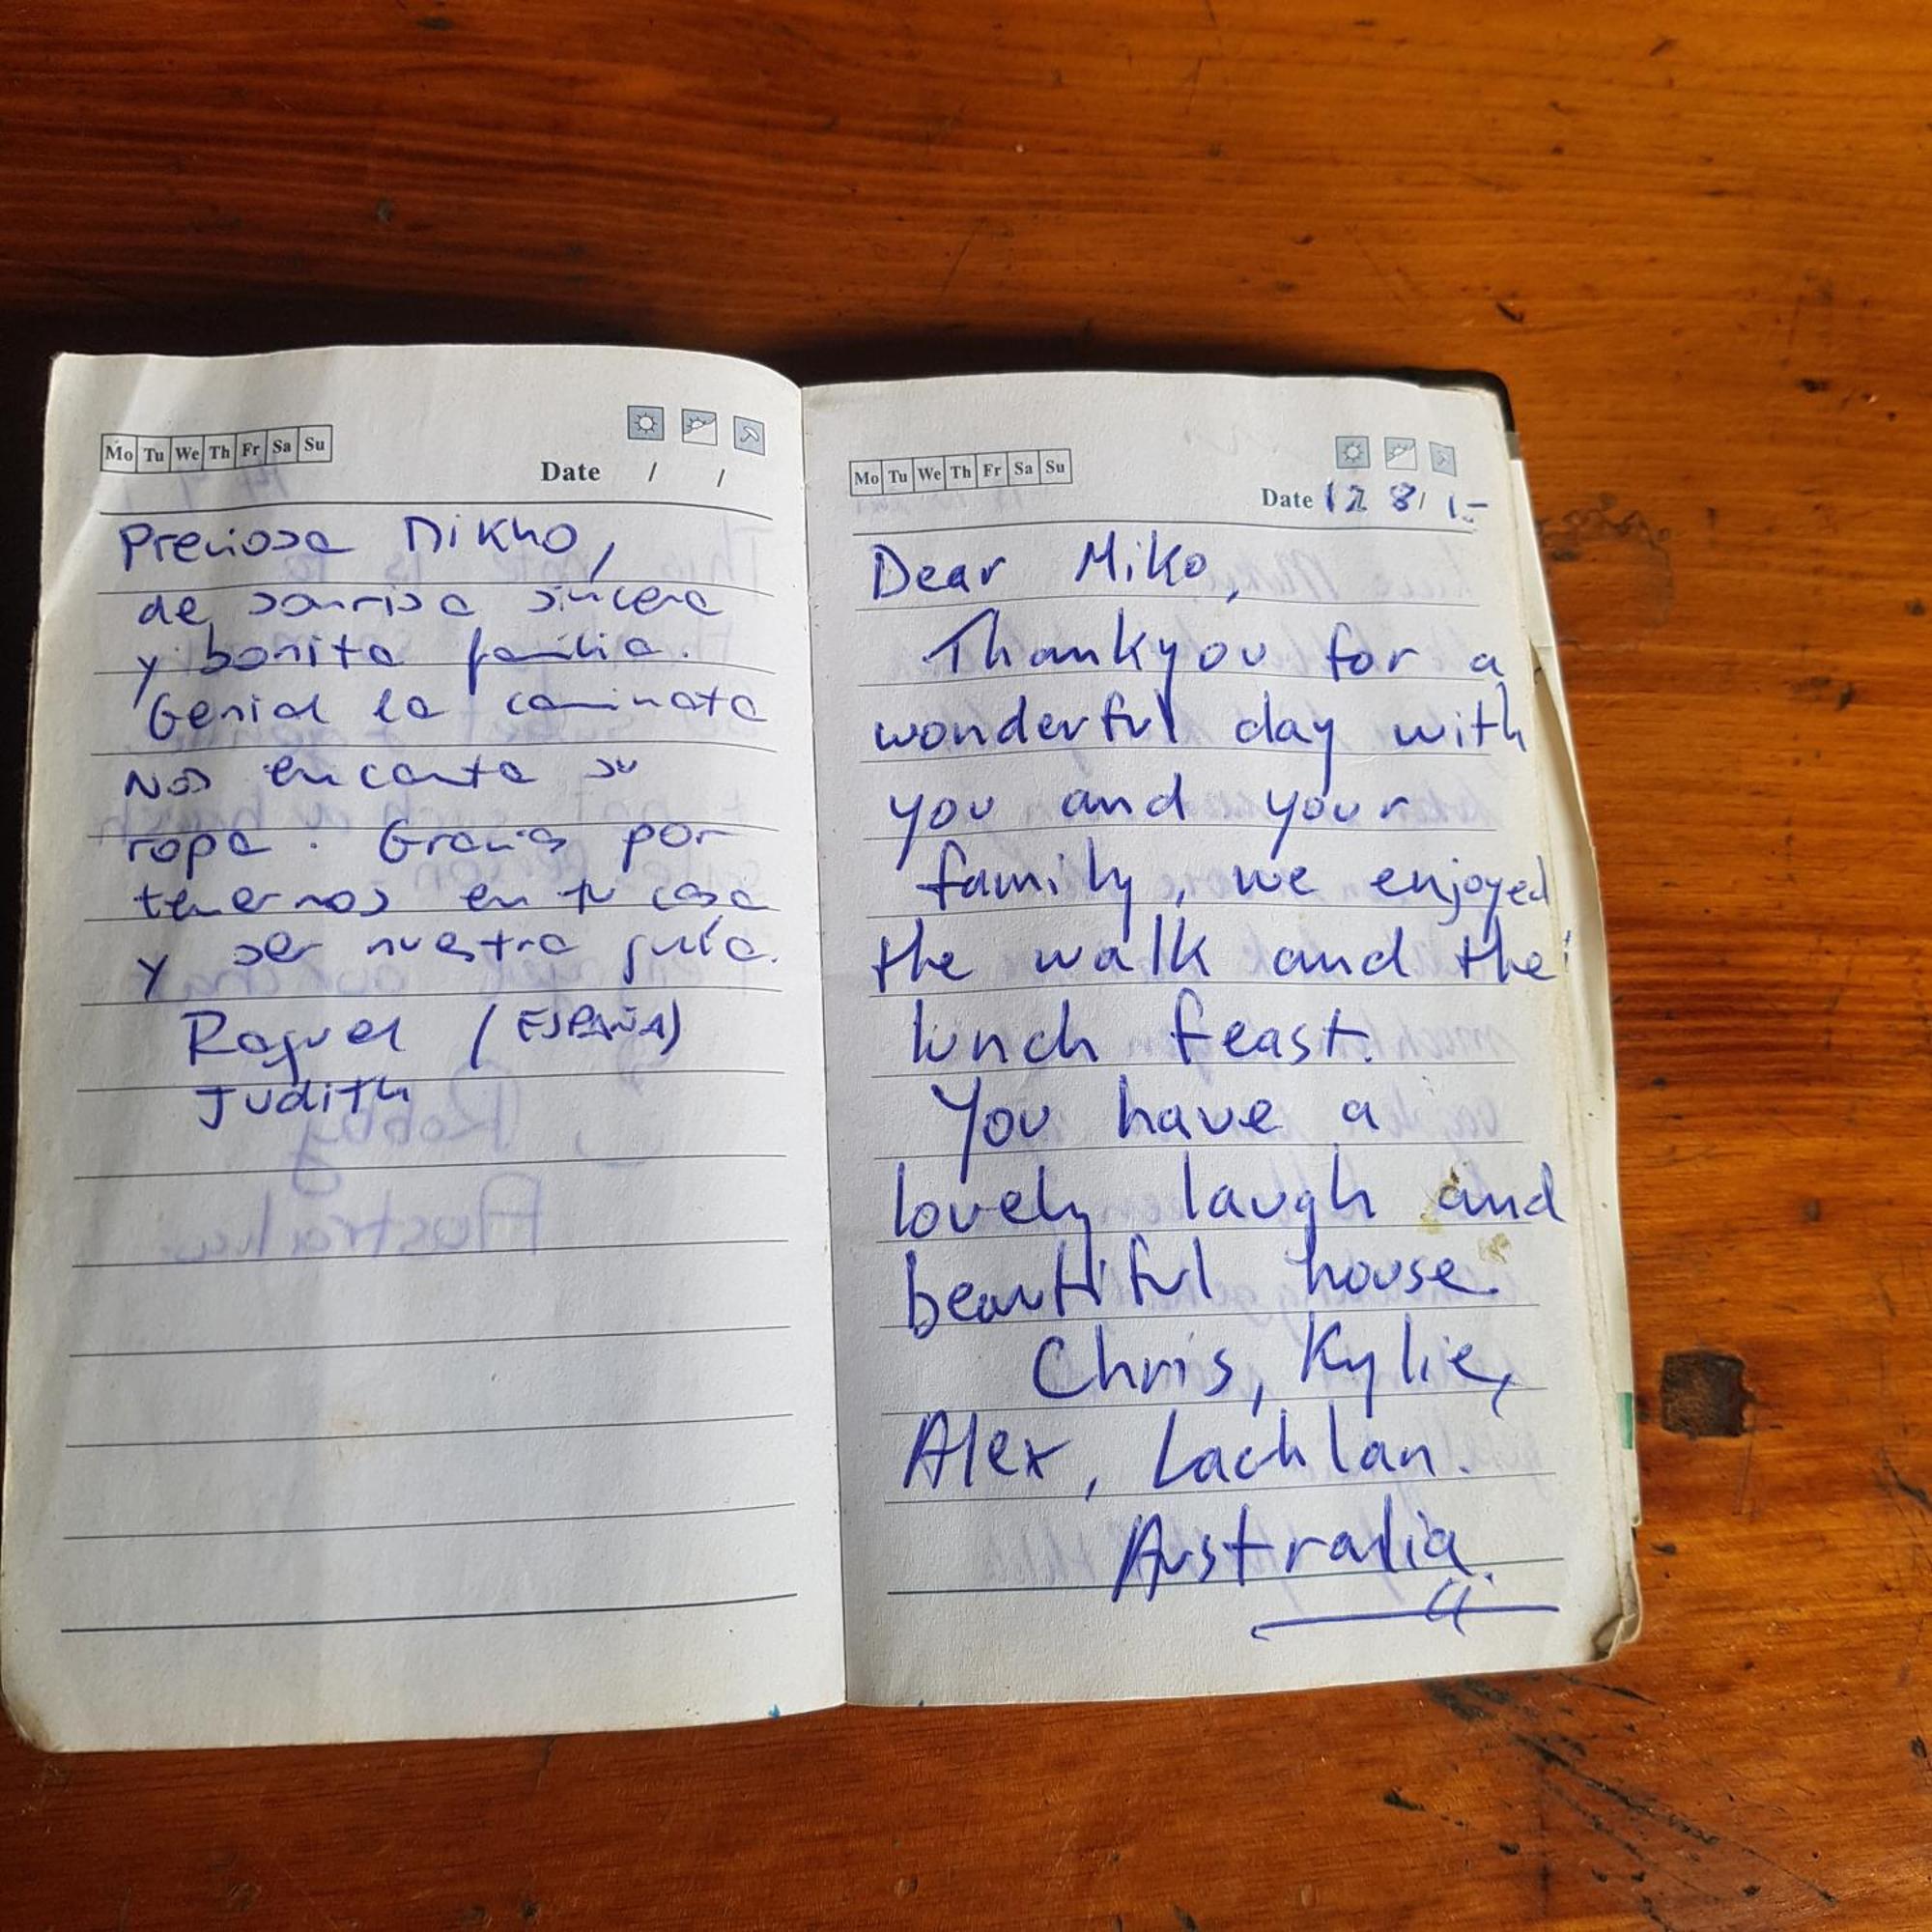 Mo Tu We Th Fr Sa Su
Date / /
Preciosa Mikho,
de sonrisa sincera
y bonita familia.
Genial la caminata
Nos encanta su
ropa. Gracias por
tenernos en tu casa
y ser nuestra guía.
Raquel / (ESPAÑA)
Judith
Mo Tu We Th Fr Sa Su
Date 12 8/
Dear Miko,
Thankyou for a
wonderful day with
you and your
family, we enjoyed
the walk and the
lunch feast.
You have a
lovely laugh and
beautiful house.
Chris, Kylie,
Alex, Lachlan.
Australia